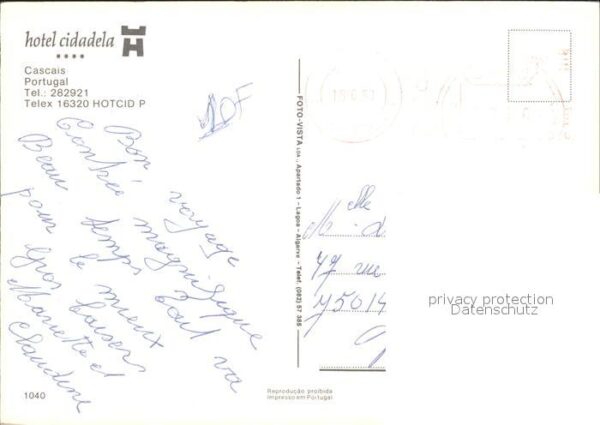 hotel cidadela
Cascais
Portugal
Tel.: 282921
Telex 16320 HOTCID P
10F
Bon voyage
Contrée magnifique
Beau temps tout va
pour le mieux
Gros baisers
Mariette et
Claudine
1040
FOTO-VISTA LDA., Apartado 1 - Lagoa - Algarve - Telef. (082) 57 385
Reprodução proibida
Impresso em Portugal
Mlle
47 rue
75014
privacy protection
Datenschutz